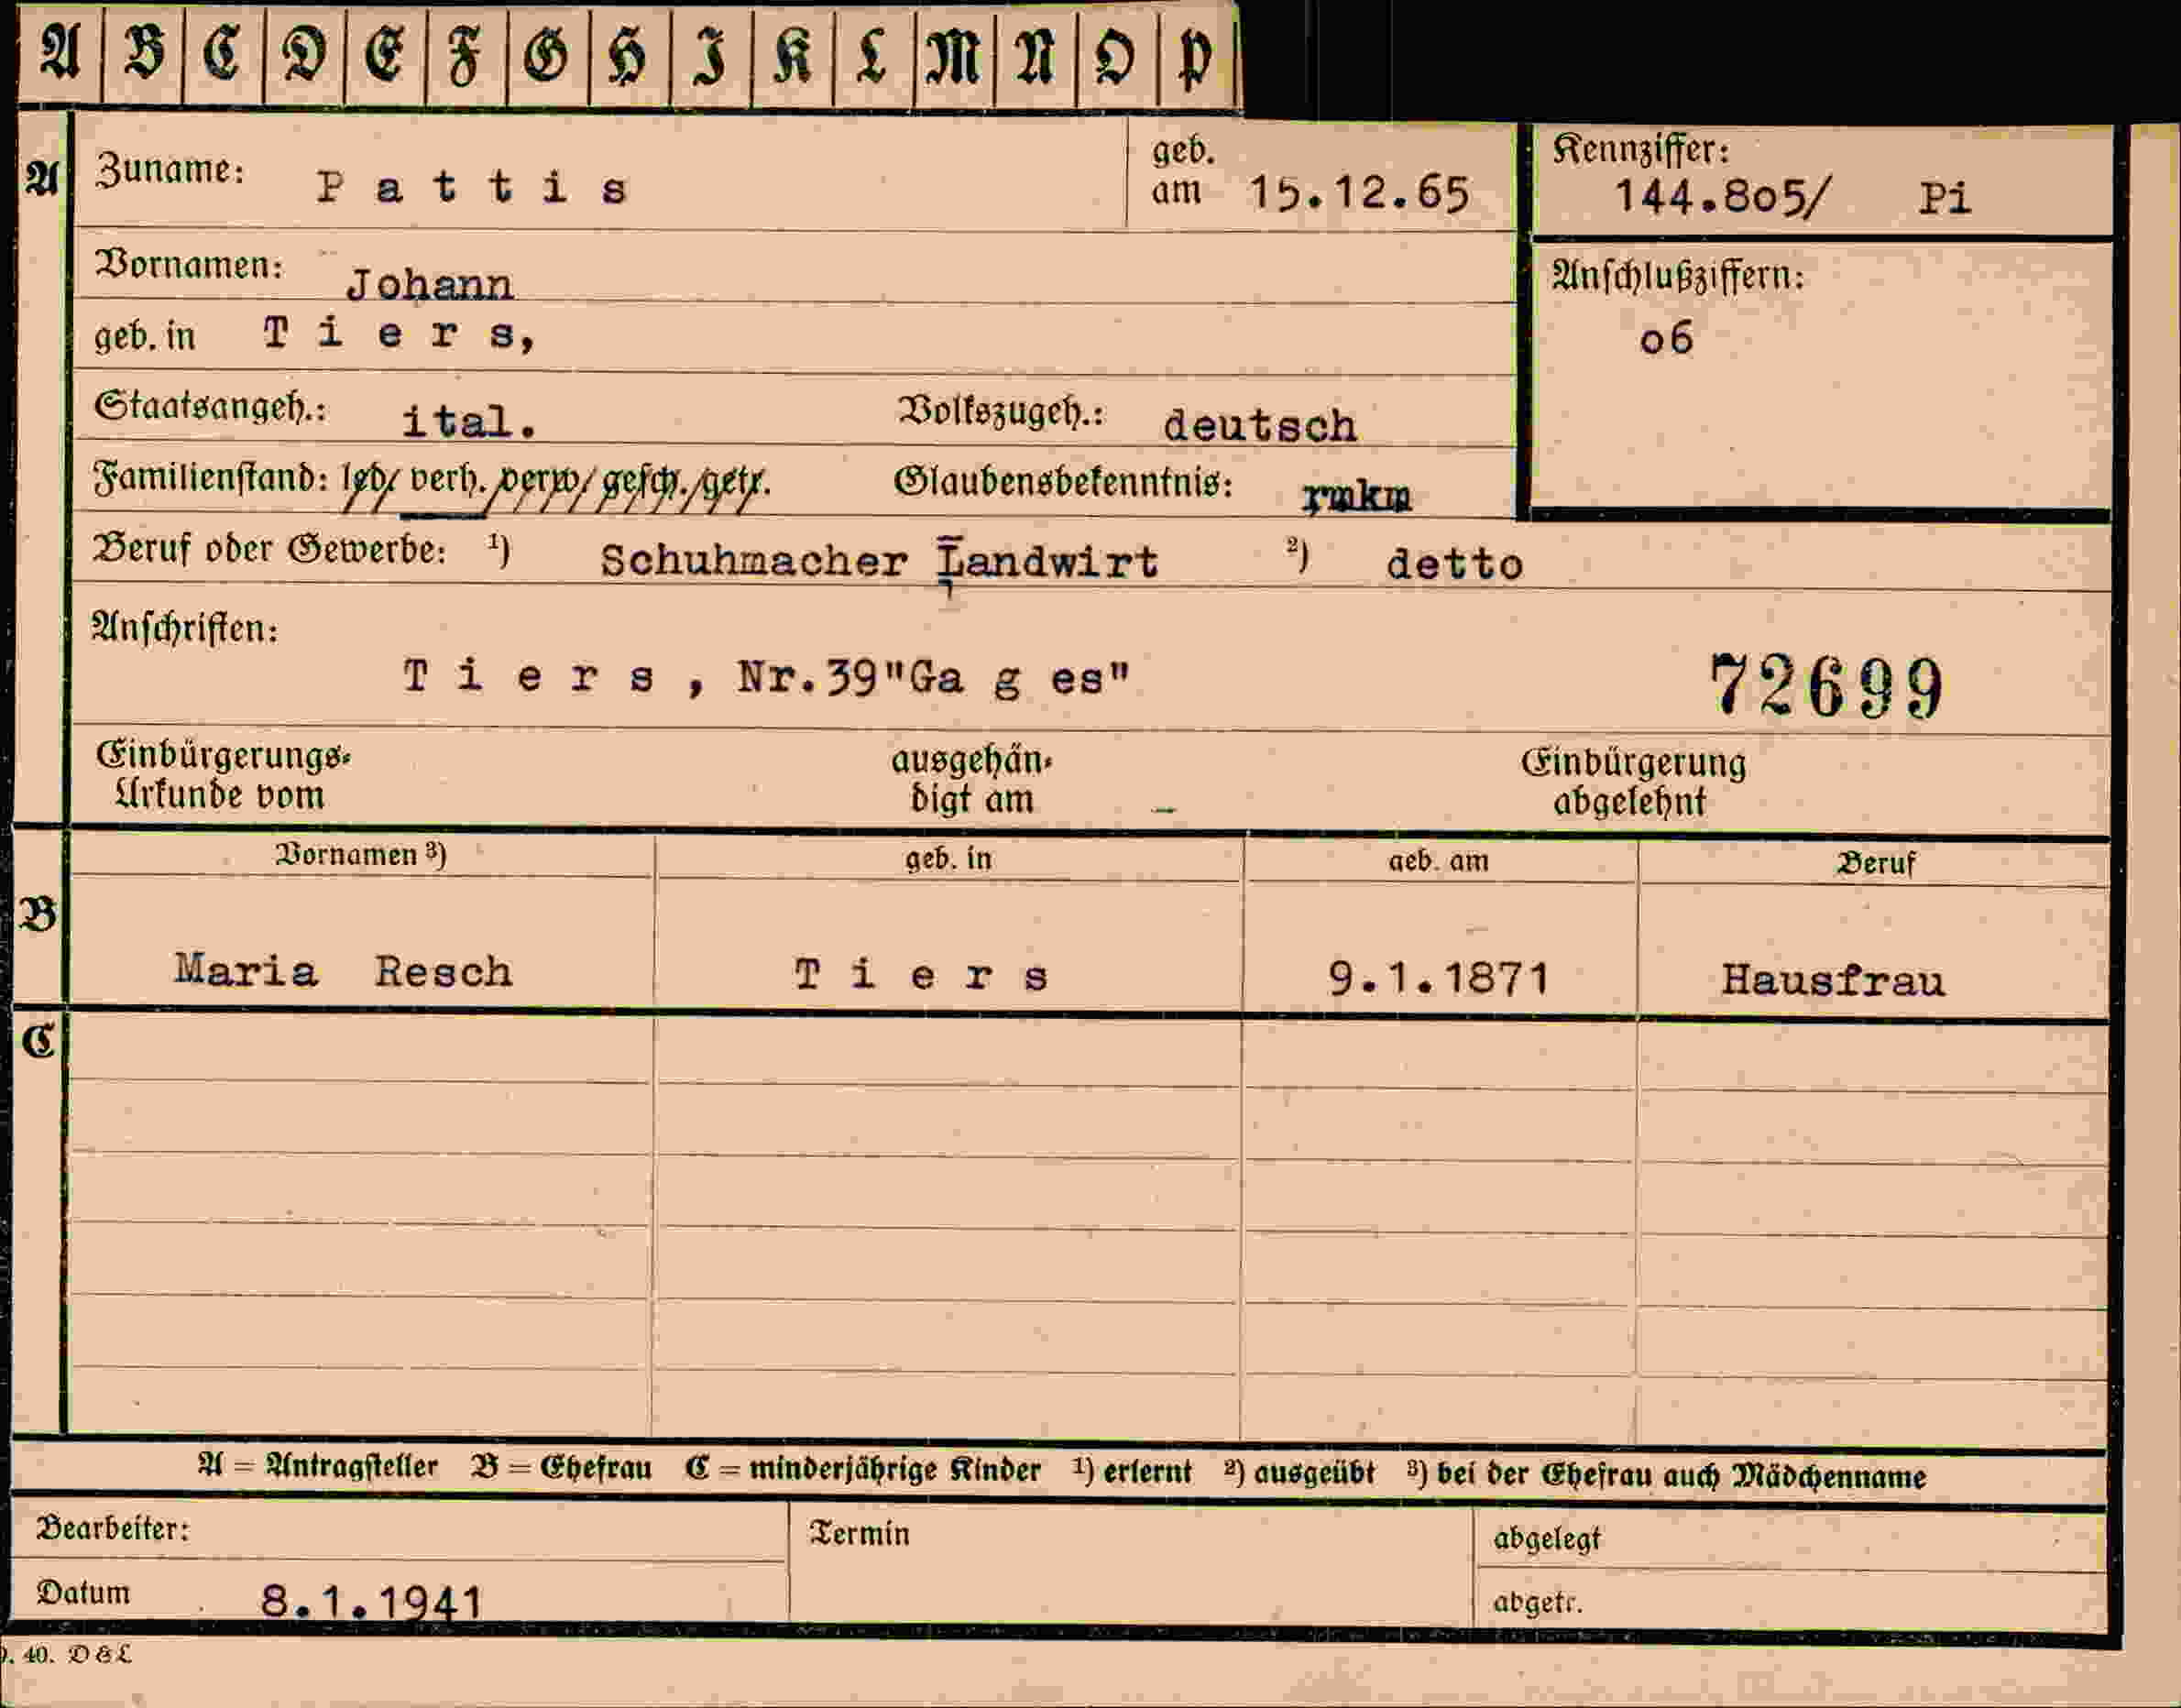 A B C D E F G H I K L M N O P
A Zuname: P a t t i s geb. am 15.12.65 Kennziffer: 144.8o5/ Pi
Vornamen: Johann Anschlußziffern:
geb. in T i e r s, o6
Staatsangeh.: ital. Volkszugeh.: deutsch
Familienstand: led/ verh./verw/gesch./getr. Glaubensbekenntnis: rmkm
Beruf oder Gewerbe: 1) Schuhmacher Landwirt 2) detto
Anschriften:
T i e r s , Nr.39"Ga g es" 72699
Einbürgerungs- ausgehän- Einbürgerung
Urkunde vom digt am – abgelehnt
Vornamen 3) geb. in geb. am Beruf
B
Maria Resch T i e r s 9.1.1871 Hausfrau
C
A = Antragsteller B = Ehefrau C = minderjährige Kinder 1) erlernt 2) ausgeübt 3) bei der Ehefrau auch Mädchenname
Bearbeiter: Termin abgelegt
Datum 8.1.1941 abgetr.
. 40. D & L